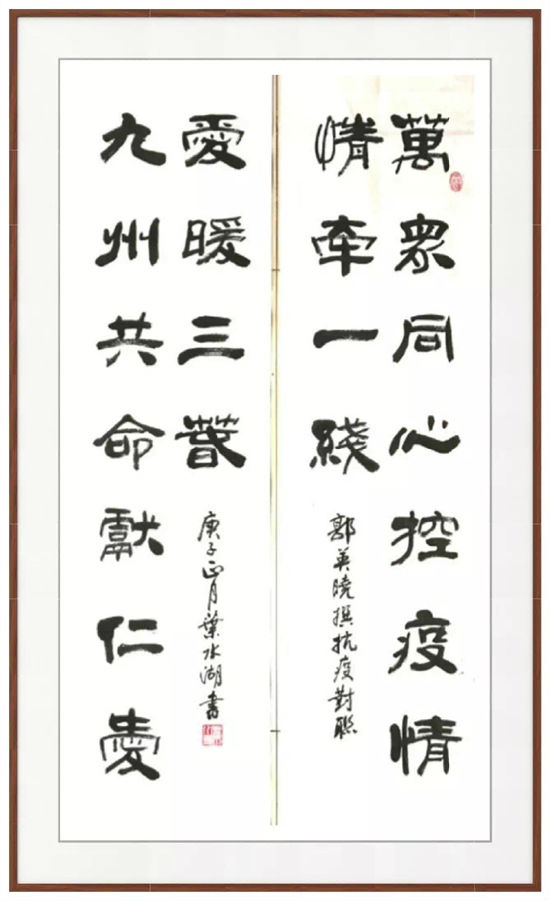 萬眾同心控疫情
情牵一綫
郭英曉撰抗疫對聯
九州共命獻仁愛
愛暖三春
庚子正月葉水湖書